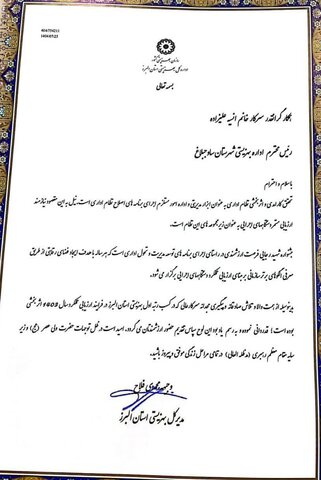 404/70421
1404/07/23
سازمان بهزیستی کشور
اداره کل بهزیستی استان البرز
بسمه تعالی
همکار گرانقدر سرکار خانم انسیه علیزاده
رئیس محترم اداره بهزیستی شهرستان ساوجبلاغ
با سلام و احترام
تحقق کارآمدی و اثربخشی نظام اداری به عنوان ابزار مدیریت و اداره امور مستلزم اجرای برنامه های اصلاح نظام اداری است. نیل به این مقصود نیازمند
ارزیابی مستمر دستگاههای اجرایی به عنوان زیرمجموعه های این نظام است.
جشنواره شهید رجایی فرصت ارزشمندی در راستای اجرای برنامه های توسعه مدیریت و تحول اداری است که هر ساله با هدف ایجاد فضای رقابتی از طریق
معرفی الگوهای برتر سازمانی بر مبنای ارزیابی عملکرد دستگاههای اجرایی برگزار می شود.
بدینوسیله از همت والا و تلاش صادقانه و پیگیری مجدانه سرکارعالی که در کسب رتبه اول بهزیستی استان البرز در فرایند ارزیابی عملکرد سال ۱۴۰۳ اثربخش
بوده است؛ قدردانی نموده و به رسم یادبود این لوح سپاس تقدیم حضور ارزشمندتان می گردد. امید است در ظل توجهات حضرت ولی عصر (عج) و زیر
سایه مقام معظم رهبری (مدظله العالی) در تمامی مراحل زندگی موفق و پیروز باشید.
وجیهه محمدی فلاح
مدیرکل بهزیستی استان البرز